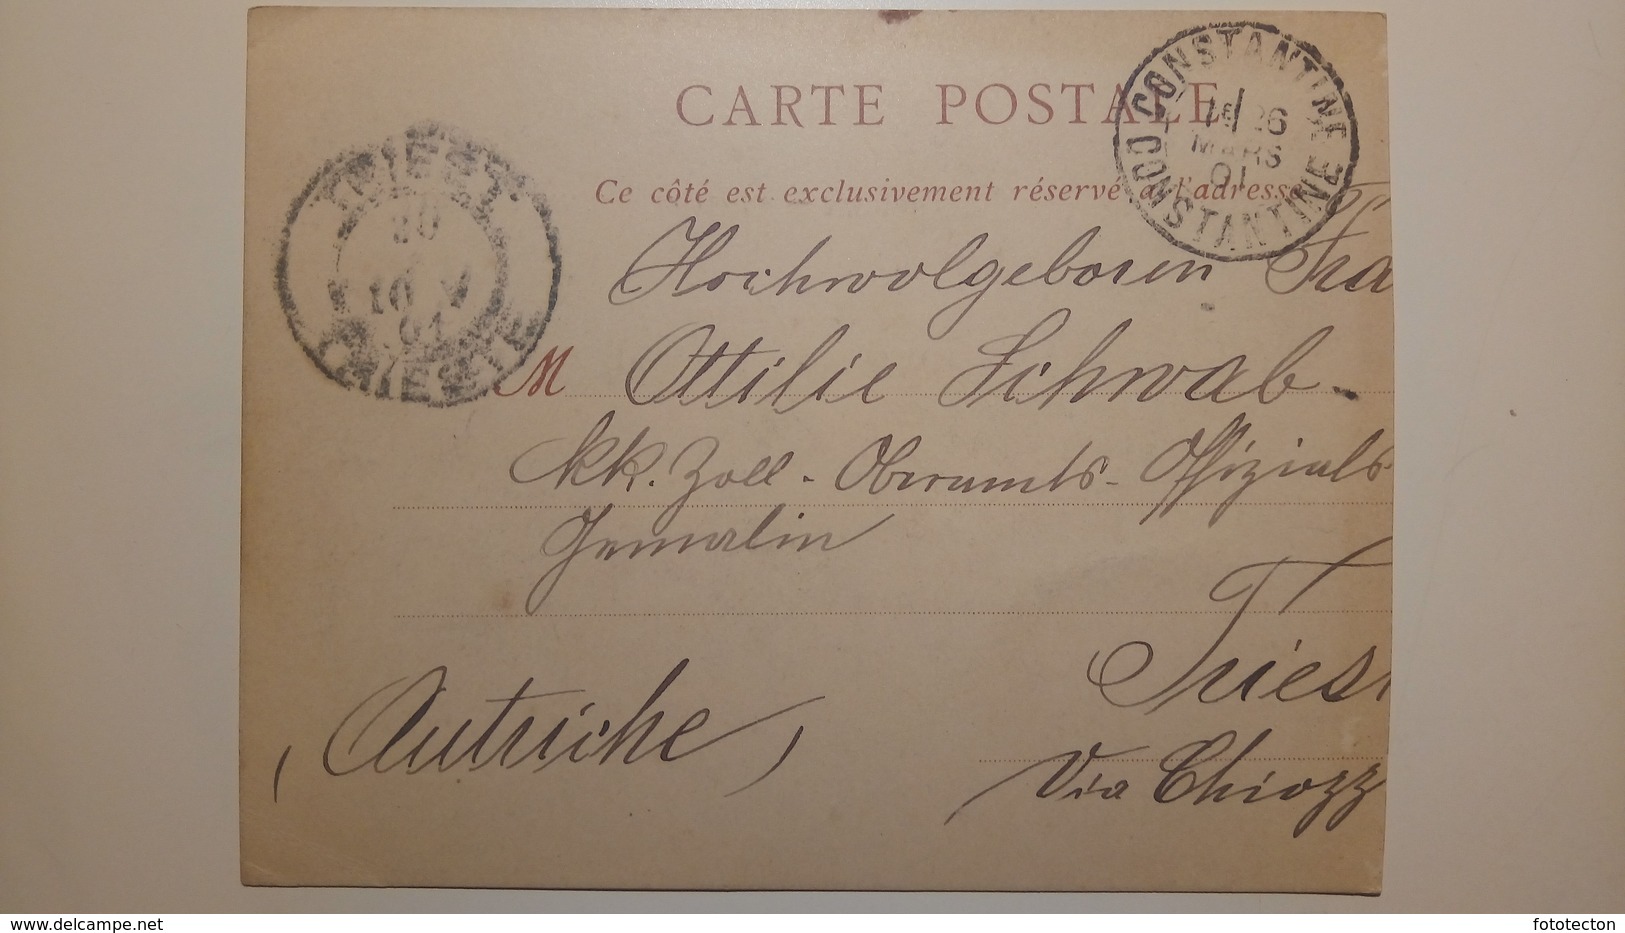 CARTE POSTALE
Ce côté est exclusivement réservé à l'adresse
CONSTANTINE
26
MARS
01
CONSTANTINE
TRIEST
30
10 V
01
TRIESTE
Hochwolgeboren Fra
M Ottilie Schwab-
kk. Zoll-Oberamts-Offizials
Gemalin
Triest
(Autriche)
Via Chiozz
www.delcampe.net
fototecton